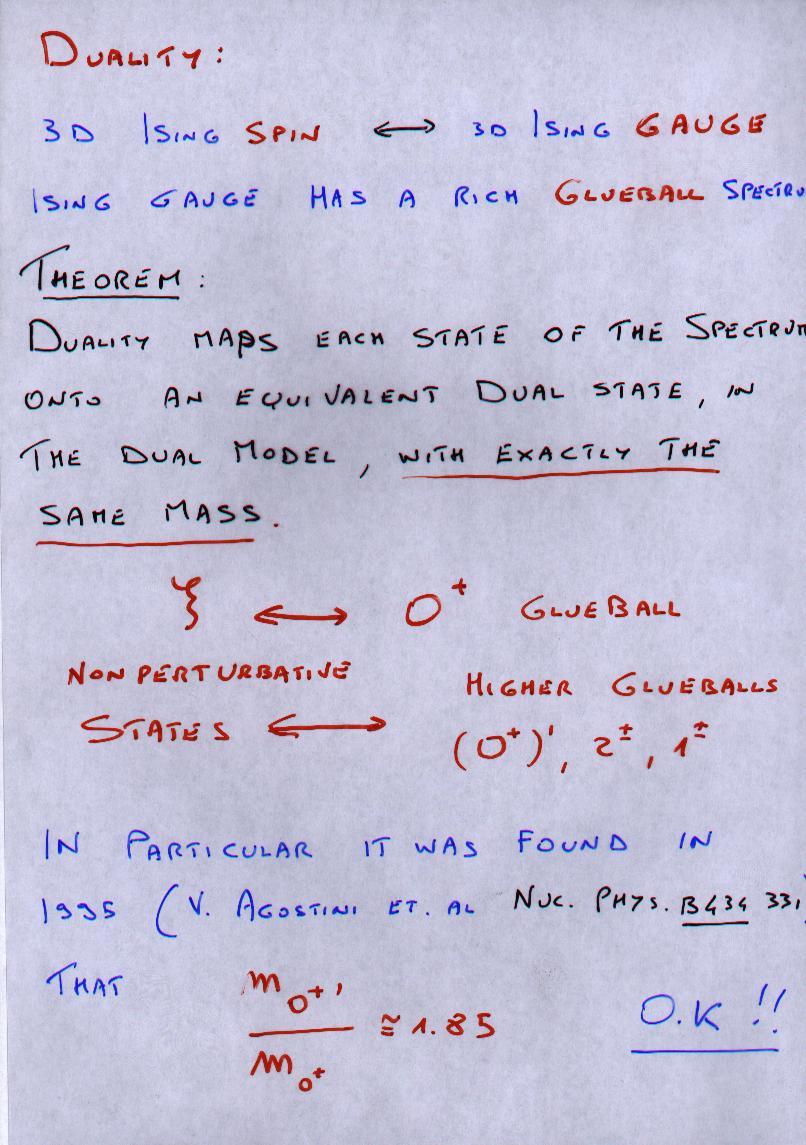 DUALITY:
3D ISING SPIN ⟷ 3D ISING GAUGE
ISING GAUGE HAS A RICH GLUEBALL SPECTRU
THEOREM:
DUALITY MAPS EACH STATE OF THE SPECTRUM
ONTO AN EQUIVALENT DUAL STATE, IN
THE DUAL MODEL, WITH EXACTLY THE
SAME MASS.
ξ ⟷ 0⁺ GLUEBALL
NON PERTURBATIVE HIGHER GLUEBALLS
STATES ⟷ (0⁺)', 2±, 1±
IN PARTICULAR IT WAS FOUND IN
1995 (V. AGOSTINI ET. AL NUC. PHYS. B434 331)
THAT m₀₊' / m₀₊ ≅ 1.85 O.K !!